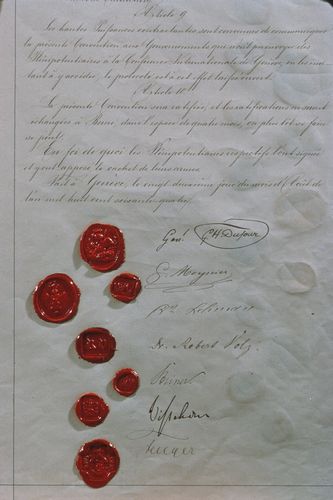 Article 9
Les hautes Puissances contractantes sont convenues de communiquer
la présente Convention aux Gouvernements qui n'ont pu envoyer des
Plénipotentiaires à la Conférence Internationale de Genève, en les invi-
tant à y accéder; le protocole est à cet effet laissé ouvert.
Article 10
La présente Convention sera ratifiée, et les ratifications en seront
échangées à Berne, dans l'espace de quatre mois, ou plus tôt si faire
se peut.
En foi de quoi les Plénipotentiaires respectifs l'ont signée
et y ont apposé le cachet de leurs armes.
Fait à Genève, le vingt deuxième jour du mois d'Août de
l'an mil huit cent soixante quatre.
Genl. GH Dufour
G. Moynier
Dr Lehmann
Dr Robert Volz
Steiner
Visschers